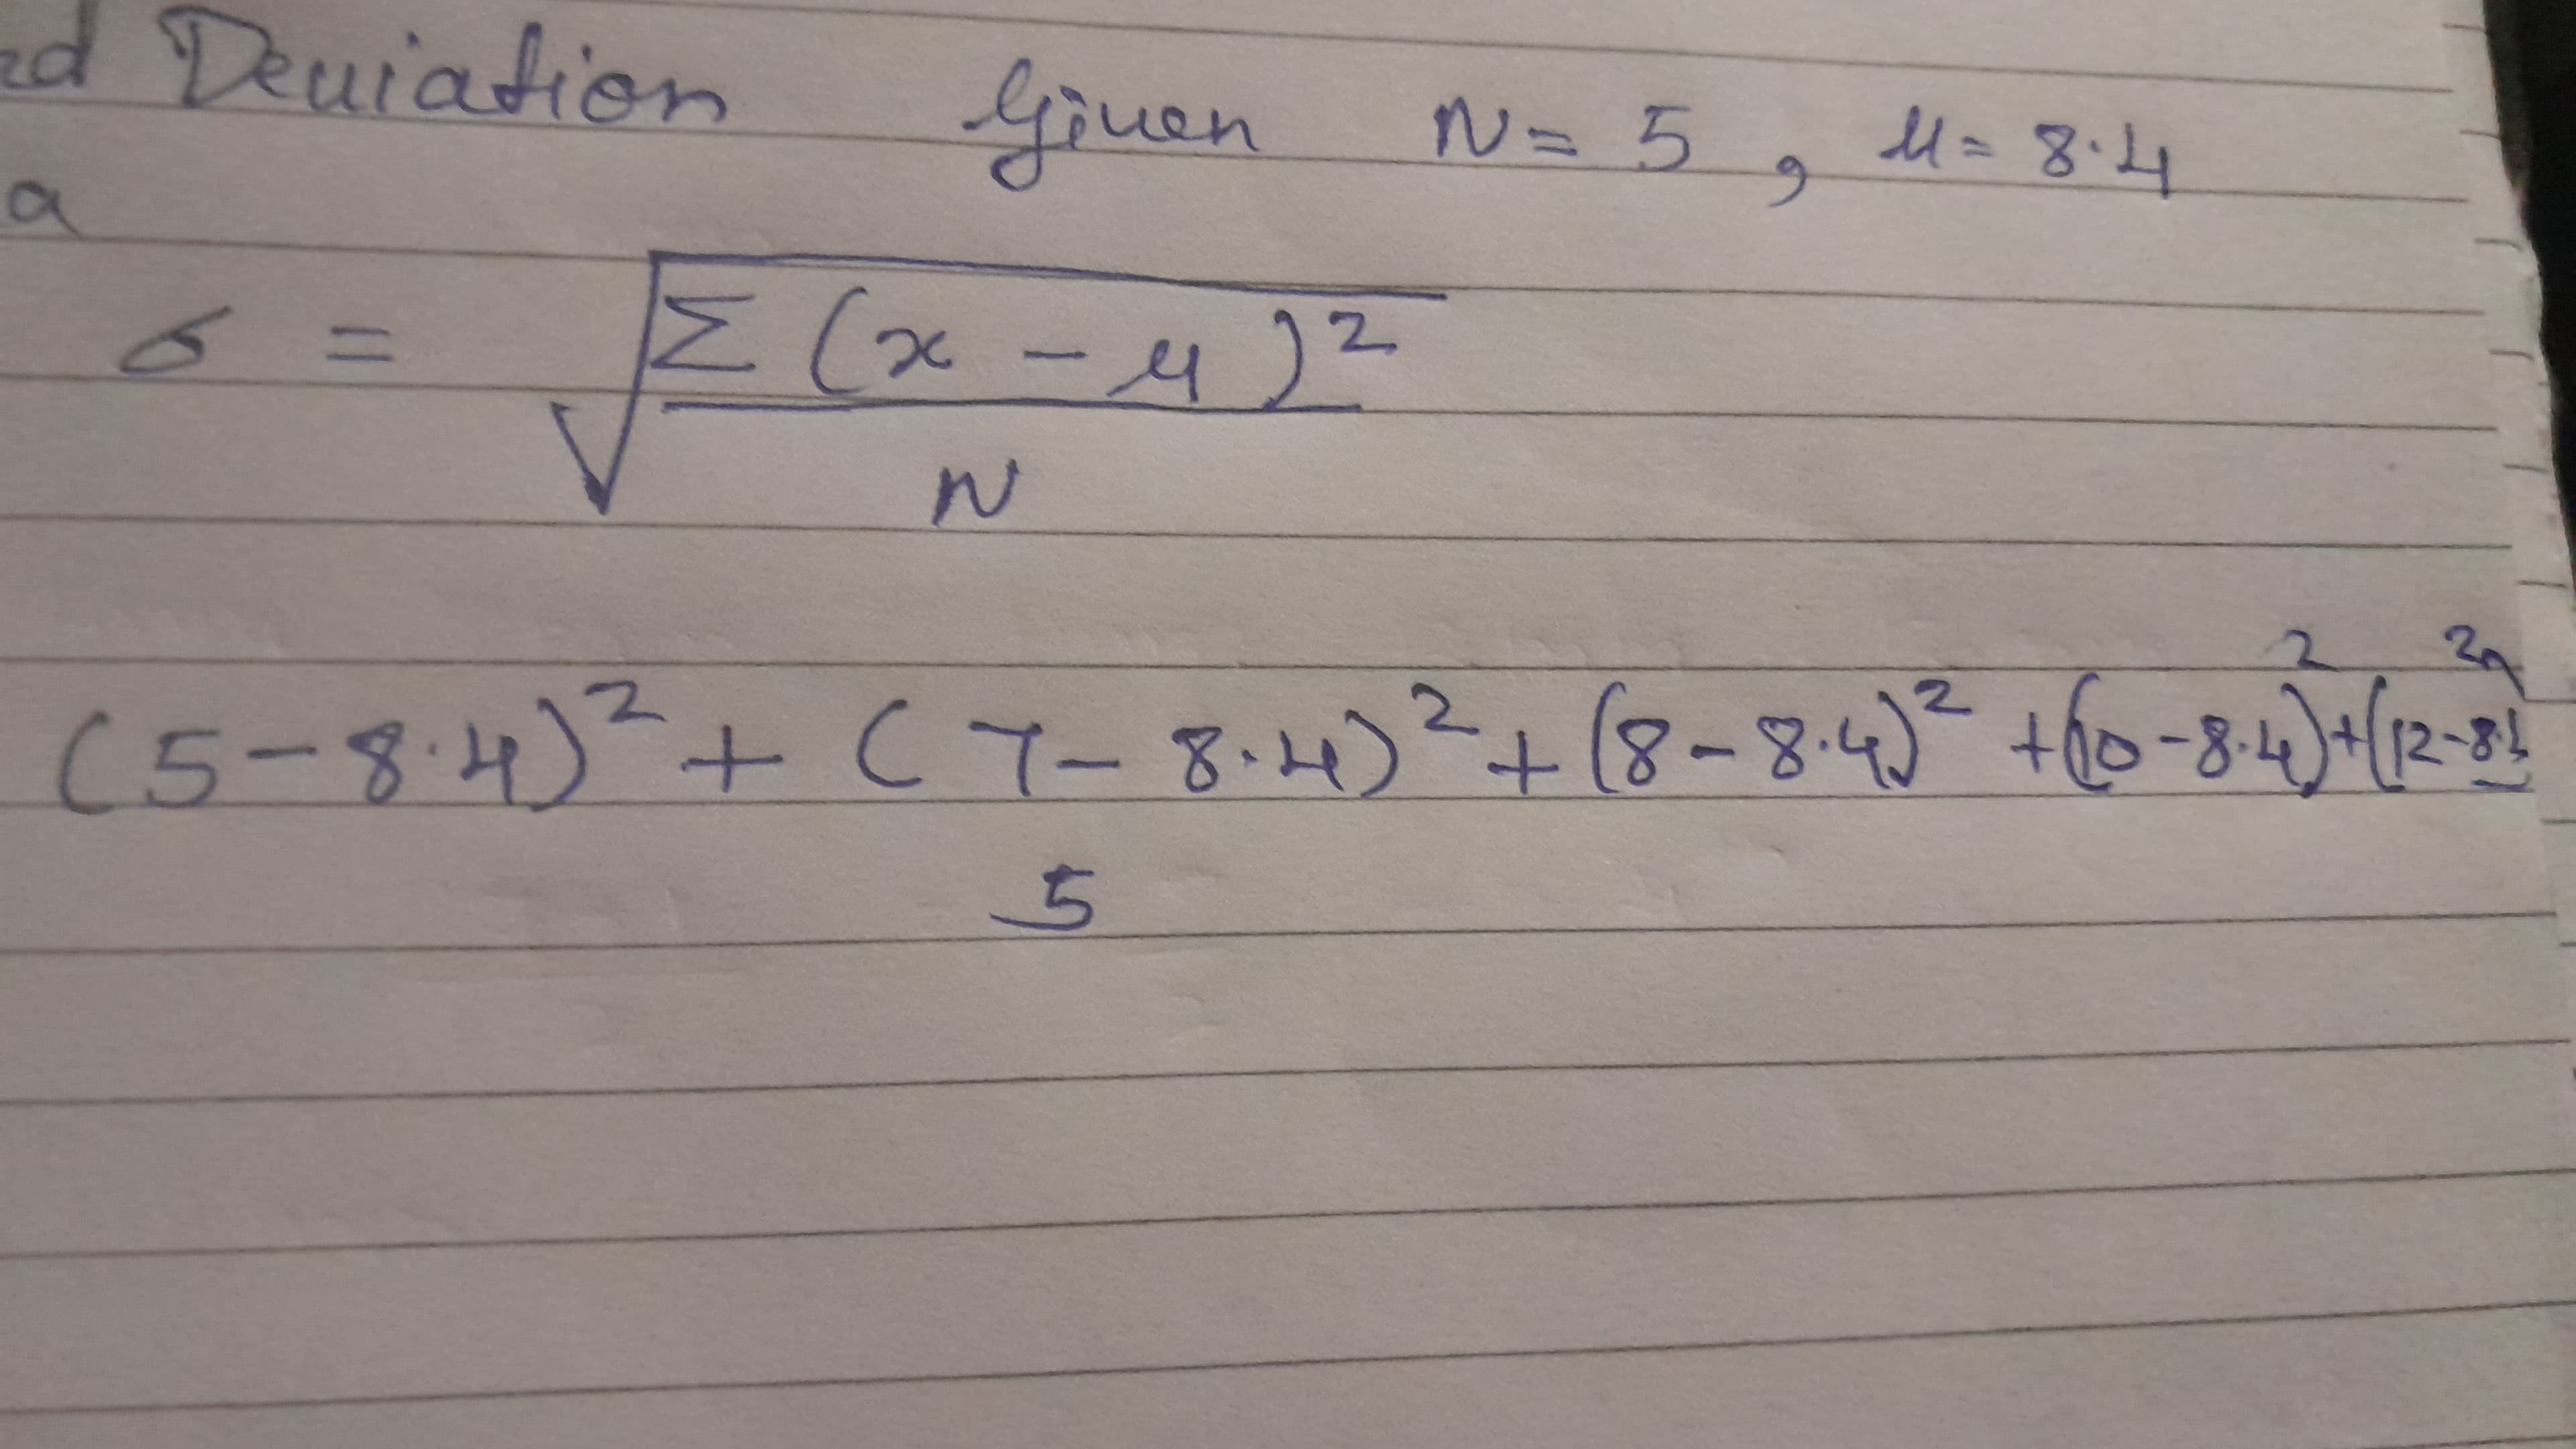 Deviation Given N = 5 , μ = 8.4
a
σ = √ Σ (x - μ)² / N
(5 - 8.4)² + (7 - 8.4)² + (8 - 8.4)² + (10 - 8.4)² + (12 - 8.
5